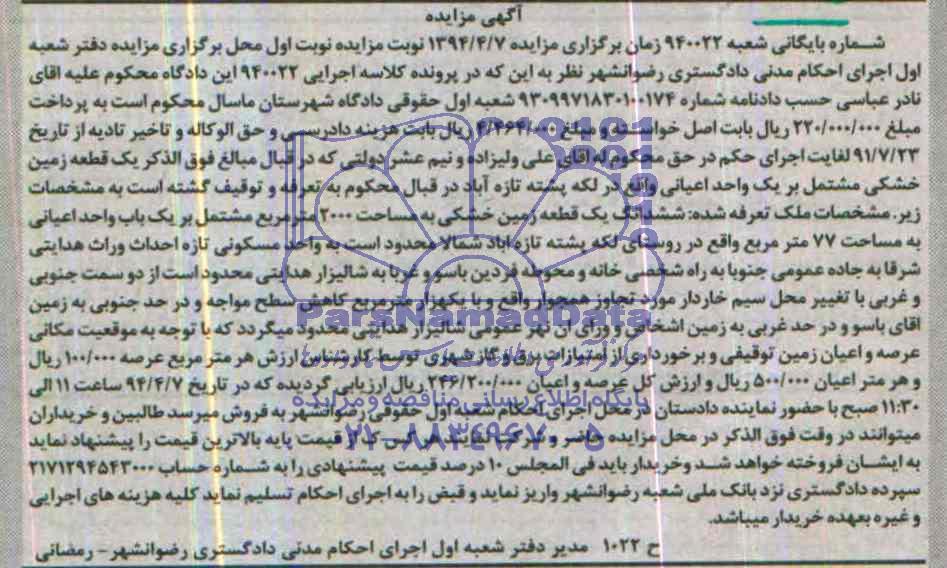 آگهی مزایده
شماره بایگانی شعبه ۹۴۰۰۲۲ زمان برگزاری مزایده ۱۳۹۴/۴/۷ نوبت مزایده نوبت اول محل برگزاری مزایده دفتر شعبه
اول اجرای احکام مدنی دادگستری رضوانشهر نظر به این که در پرونده کلاسه اجرایی ۹۴۰۰۲۲ این دادگاه محکوم علیه اقای
نادر عباسی حسب دادنامه شماره ۹۳۰۹۹۷۱۸۳۰۱۰۰۱۷۴ شعبه اول حقوقی دادگاه شهرستان ماسال محکوم است به پرداخت
مبلغ ۲۲۰/۰۰۰/۰۰۰ ریال بابت اصل خواسته و مبلغ ۴/۴۶۴/۰۰۰ ریال بابت هزینه دادرسی و حق الوکاله و تاخیر تادیه از تاریخ
۹۱/۷/۲۳ لغایت اجرای حکم در حق محکوم له اقای علی ولیزاده و نیم عشر دولتی که در قبال مبالغ فوق الذکر یک قطعه زمین
خشکی مشتمل بر یک واحد اعیانی واقع در لکه پشته تازه آباد در قبال محکوم به تعرفه و توقیف گشته است به مشخصات
زیر. مشخصات ملک تعرفه شده: ششدانگ یک قطعه زمین خشکی به مساحت ۲۰۰۰ مترمربع مشتمل بر یک باب واحد اعیانی
به مساحت ۷۷ متر مربع واقع در روستای لکه پشته تازه اباد شمالا محدود است به واحد مسکونی تازه احداث وراث هدایتی
شرقا به جاده عمومی جنوبا به راه شخصی خانه و محوطه فردین باسو و غربا به شالیزار هدایتی محدود است از دو سمت جنوبی
و غربی با تغییر محل سیم خاردار مورد تجاوز همجوار واقع و با یکهزار مترمربع کاهش سطح مواجه و در حد جنوبی به زمین
اقای باسو و در حد غربی به زمین اشخاص و ورای ان نهر عمومی شالیزار هدایتی محدود میگردد که با توجه به موقعیت مکانی
عرصه و اعیان زمین توقیفی و برخورداری از امتیازات برق و گاز شهری توسط کارشناس ارزش هر متر مربع عرصه ۱۰۰/۰۰۰ ریال
و هر متر اعیان ۵۰۰/۰۰۰ ریال و ارزش کل عرصه و اعیان ۲۴۶/۲۰۰/۰۰۰ ریال ارزیابی گردیده که در تاریخ ۹۴/۴/۷ ساعت ۱۱ الی
۱۱:۳۰ صبح با حضور نماینده دادستان در محل اجرای احکام شعبه اول حقوقی رضوانشهر به فروش میرسد طالبین و خریداران
میتوانند در وقت فوق الذکر در محل مزایده حاضر و شرکت نمایند هر کس که از قیمت پایه بالاترین قیمت را پیشنهاد نماید
به ایشان فروخته خواهد شد وخریدار باید فی المجلس ۱۰ درصد قیمت پیشنهادی را به شماره حساب ۲۱۷۱۲۹۴۵۴۳۰۰۰
سپرده دادگستری نزد بانک ملی شعبه رضوانشهر واریز نماید و قبض را به اجرای احکام تسلیم نماید کلیه هزینه های اجرایی
و غیره بعهده خریدار میباشد.
ح ۱۰۲۲ مدیر دفتر شعبه اول اجرای احکام مدنی دادگستری رضوانشهر- رمضانی
ParsNamadData
پایگاه اطلاع رسانی مناقصه و مزایده
۰۲۱-۸۸۳۴۹۶۷۰-۵